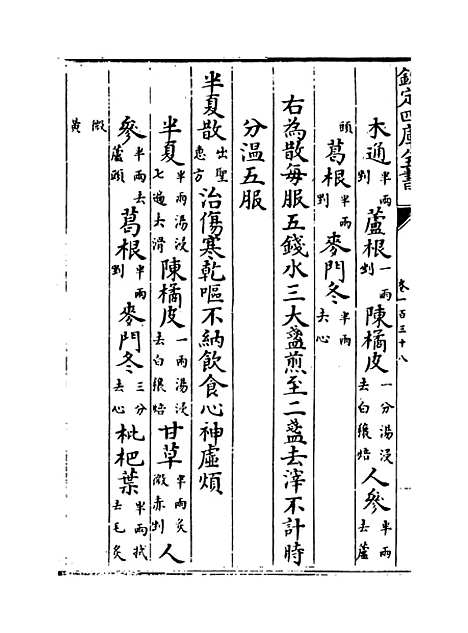 欽定四庫全書
卷一百三十八
木通半兩剉蘆根一兩剉陳橘皮一分湯浸去白瓤焙人參半兩去蘆
頭葛根半兩剉麥門冬半兩去心
右為散每服五錢水三大盞煎至二盞去滓不計時
分温五服
半夏散出聖惠方治傷寒乾嘔不納飲食心神虛煩
半夏半兩湯浸七遍去滑陳橘皮一兩湯浸去白瓤焙甘草半兩炙微赤剉人
參半兩去蘆頭葛根半兩剉麥門冬三分去心枇杷葉半兩拭去毛炙
微黃